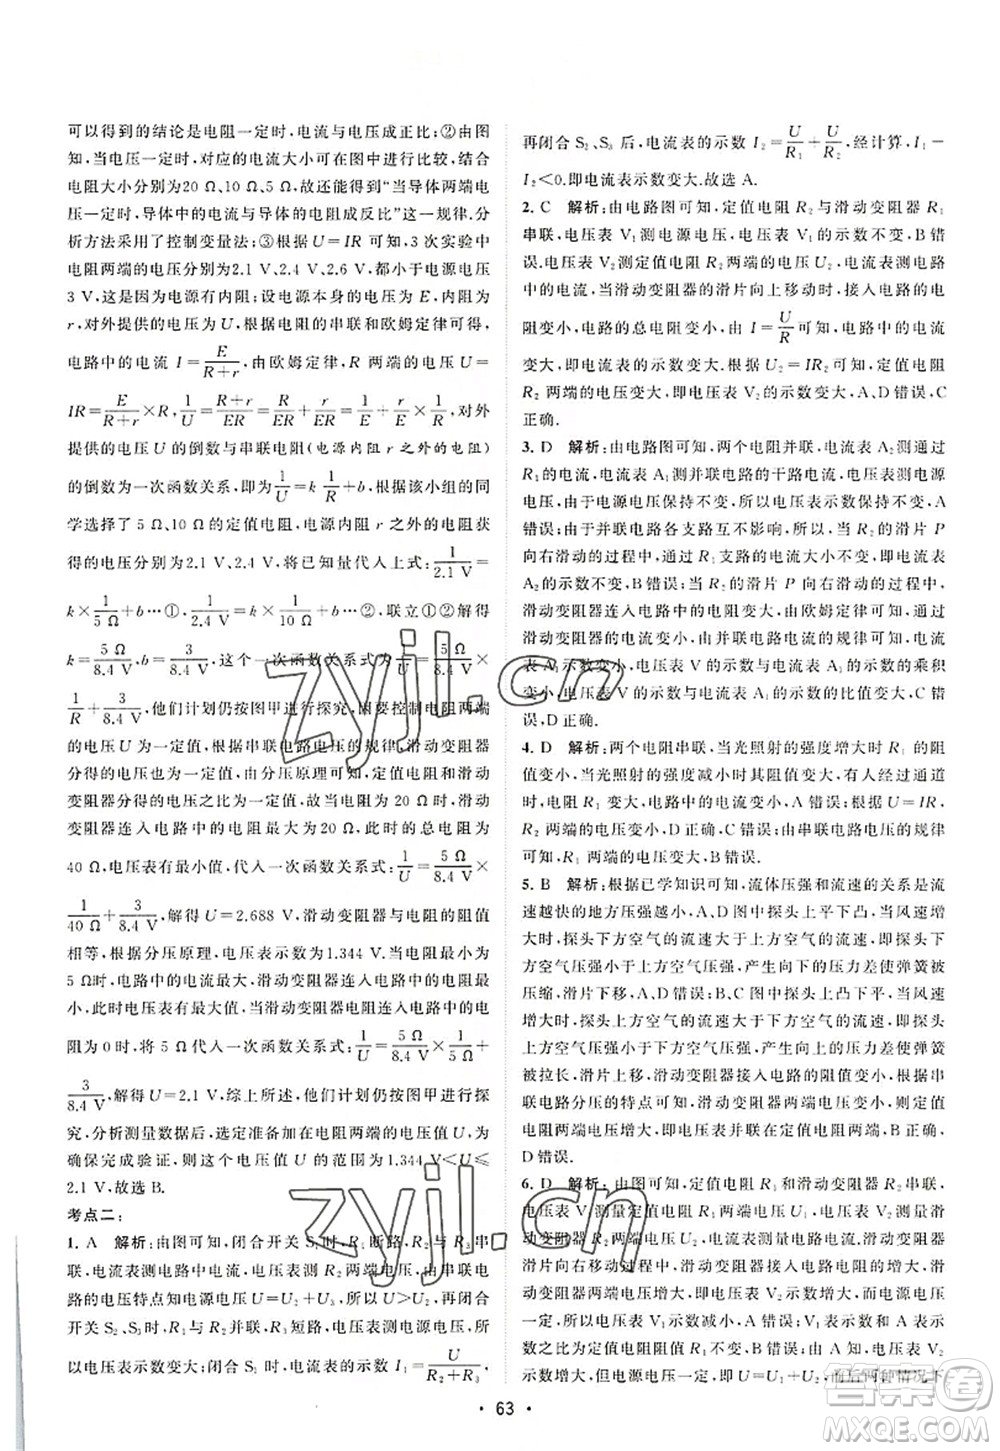 可以得到的结论是电阻一定时,电流与电压成正比;②由图
知,当电压一定时,对应的电流大小可在图中进行比较,结合
电阻大小分别为20 Ω、10 Ω、5 Ω,还能得到“当导体两端电
压一定时,导体中的电流与导体的电阻成反比”这一规律.分
析方法采用了控制变量法;③根据 U=IR 可知,3 次实验中
电阻两端的电压分别为2.1 V、2.4 V、2.6 V,都小于电源电压
3 V,这是因为电源有内阻;设电源本身的电压为 E,内阻为
r,对外提供的电压为 U,根据电阻的串联和欧姆定律可得,
电路中的电流 I=E/(R+r),由欧姆定律,R 两端的电压 U=
IR=E/(R+r)×R,1/U=(R+r)/ER=R/ER+r/ER=1/E+r/E×1/R,对外
提供的电压 U 的倒数与串联电阻(电源内阻 r 之外的电阻)
的倒数为一次函数关系,即 1/U=k 1/R+b;④根据该小组的同
学选择了 5 Ω、10 Ω 的定值电阻,电源内阻 r 之外的电阻获
得的电压分别为 2.1 V、2.4 V,将已知量代入上式:1/2.1 V=
k×1/5 Ω+b…①,1/2.4 V=k×1/10 Ω+b…②,联立①②解得
k=5 Ω/8.4 V,b=3/8.4 V,这个一次函数关系式为 1/U=5 Ω/8.4 V×
1/R+3/8.4 V,他们计划仍按图甲进行探究,因要控制电阻两端
的电压 U 为一定值,根据串联电阻电压的规律,滑动变阻器
分得的电压为一定值,由分压原理可知,定值电阻和滑动
变阻器分得的电压之比为一定值,故当电阻为 20 Ω 时,滑动
变阻器连入电路中的电阻为 20 Ω 时,此时的总电阻为
40 Ω,电压表有最小值,代入一次函数关系式:1/U=5 Ω/8.4 V×
1/40 Ω+3/8.4 V,解得 U=2.688 V,滑动变阻器与电阻的阻值
相等,根据分压原理,电压表示数为 1.344 V;为使电压表示
数最大,电路中的电流最大,滑动变阻器连入电路中的电阻最
小,此时电压表有最大值,当滑动变阻器连入电路中的电
阻为0时,将 5 Ω 代入一次函数关系式:1/U=5 Ω/8.4 V×1/5 Ω+
3/8.4 V,解得 U=2.1 V,综上所述,他们计划仍按图甲进行探
究,分析测量数据后,选定准备加在电阻两端的电压 U,为
确保完成验证,则这个电压值 U 的范围为 1.344 V≤U≤
2.1 V,故选 B.
考点二:
1. A 解析:由图可知,闭合开关 S₁时,R₁断路,R₂与 R₃串
联,电流表测电路中电流,电压表测 R₂两端电压,由串联电路
的电压特点知电源电压 U=U₂+U₃,所以 U>U₂,再闭合
开关 S₂、S₃时,R₁与 R₂并联,R₃短路,电压表测电源电压,所
以电压表示数变大;闭合 S₁时,电流表的示数 I₁=U/(R₂+R₃),
再闭合 S₂、S₃ 后,电流表的示数 I₂=U/R₁+U/R₂,经计算,I₁-
I₂<0.即电流表示数变大.故选 A.
2. C 解析:由电路图可知,定值电阻 R₂与滑动变阻器 R₁
串联,电压表 V₁测电源电压,电压表 V₁的示数不变,B 错
误.电压表 V₂测定值电阻 R₂两端的电压 U₂,电流表测电路
中的电流,当滑动变阻器的滑片向上移动时,接入电路的电
阻变小,电路的总电阻变小,由 I=U/R可知,电路中的电流
变大,即电流表的示数变大.根据 U₂=IR₂可知,定值电阻
R₂ 两端的电压变大,即电压表 V₂的示数变大,A、D 错误,C
正确.
3. D 解析:由电路图可知,两个电阻并联,电流表 A₂测通过
R₁的电流,电流表 A₁测并联电路的干路电流,电压表测电源
电压,由于电源电压保持不变,所以电压表示数保持不变,A
错误;由于并联电路各支路互不影响,所以,当 R₂的滑片 P
向右滑动的过程中,通过 R₁支路的电流大小不变,即电流表
A₂的示数不变,B 错误;当 R₂的滑片 P 向右滑动的过程中,
滑动变阻器连入电路中的电阻变大,由欧姆定律可知,通过
滑动变阻器的电流变小,由并联电路电流的规律可知,电流表
A₁示数变小,所以电压表 V 的示数与电流表 A₁示数的乘积
变小,C 错误;电压表 V 示数与电流表 A₁示数的比值变大,
错误,D 正确.
4. D 解析:两个电阻串联,当光照射的强度增大时 R₁的阻
值变小,当光照射的强度减小时其阻值变大.根据欧姆定律可
知,因电阻 R₁变大,电路中的电流变小,A 错误;根据 U=IR,
R₂ 两端的电压变小,D 正确,C 错误;由串联电路电压的规律
可知,R₁ 两端的电压变大,B错误.
5. B 解析:根据已学知识可知,流体压强和流速的关系是流
速越快的地方压强越小,A、D 图中探头上平下凸,当风速增
大时,探头下方空气的流速大于上方空气的流速,探头下方
空气压强小于上方空气压强,产生向下的压力差使弹簧被
压缩,滑片下移,A、D 错误;B、C 图中探头上凸下平,当风速
增大时,探头上方空气的流速大于下方空气的流速,则探头
上方空气压强小于下方空气压强,产生向上的压力差使弹簧
被拉长,滑片上移,滑动变阻器接入电路的阻值变大,根据串
联电路分压的特点可知,滑动变阻器两端电压变大,则定值
电阻两端电压增大,即电压表示数增大,B 正确,C 错误.故
D 错误.
6. D 解析:由图可知,定值电阻 R₁与滑动变阻器 R₂串联,
电压表 V₁测量定值电阻 R₁两端的电压,电压表 V₂测量滑
动变阻器两端的电压,电流表测量电路电流,滑动变阻器的
滑片向右移动过程中,滑动变阻器接入电路的电阻变大,滑
动变阻器两端的电压增大,即电压表 V₂ 示数增大,而电源电
压不变,则电压表 V₁示数减小,A、B错误;由 A 知,电压表 V₂
示数增大,但电流减小,C 错误;
· 63 ·
zyjl.cn
zyjl.cn
答案圈
MXQE.COM